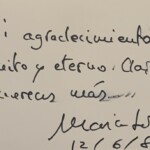 i agradecimiento
ito y eterno. Clar
mereces más...
María Lu
12/6/8